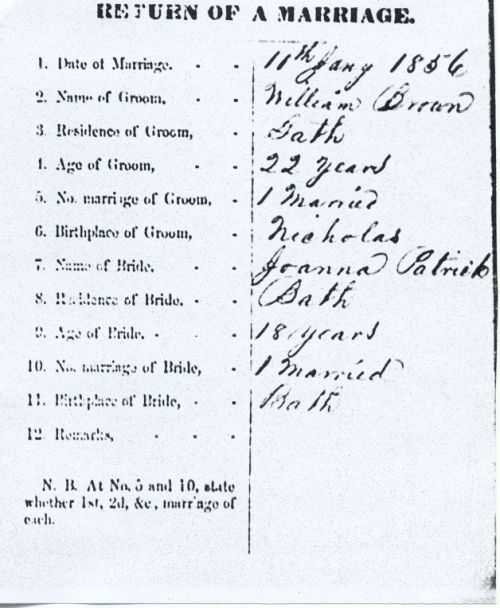 RETURN OF A MARRIAGE.
1. Date of Marriage. - - 11th Jany 1856
2. Name of Groom, - - William Brown
3. Residence of Groom, - Bath
4. Age of Groom, - - 22 years
5. No. marriage of Groom, - 1 Married
6. Birthplace of Groom, - Nicholas
7. Name of Bride. - - Joanna Patrick
8. Residence of Bride. - - Bath
9. Age of Bride. - - 18 years
10. No. marriage of Bride, - 1 Married
11. Birthplace of Bride, - - Bath
12. Remarks, - - -
N. B. At No. 5 and 10, state
whether 1st, 2d, &c., marriage of
each.